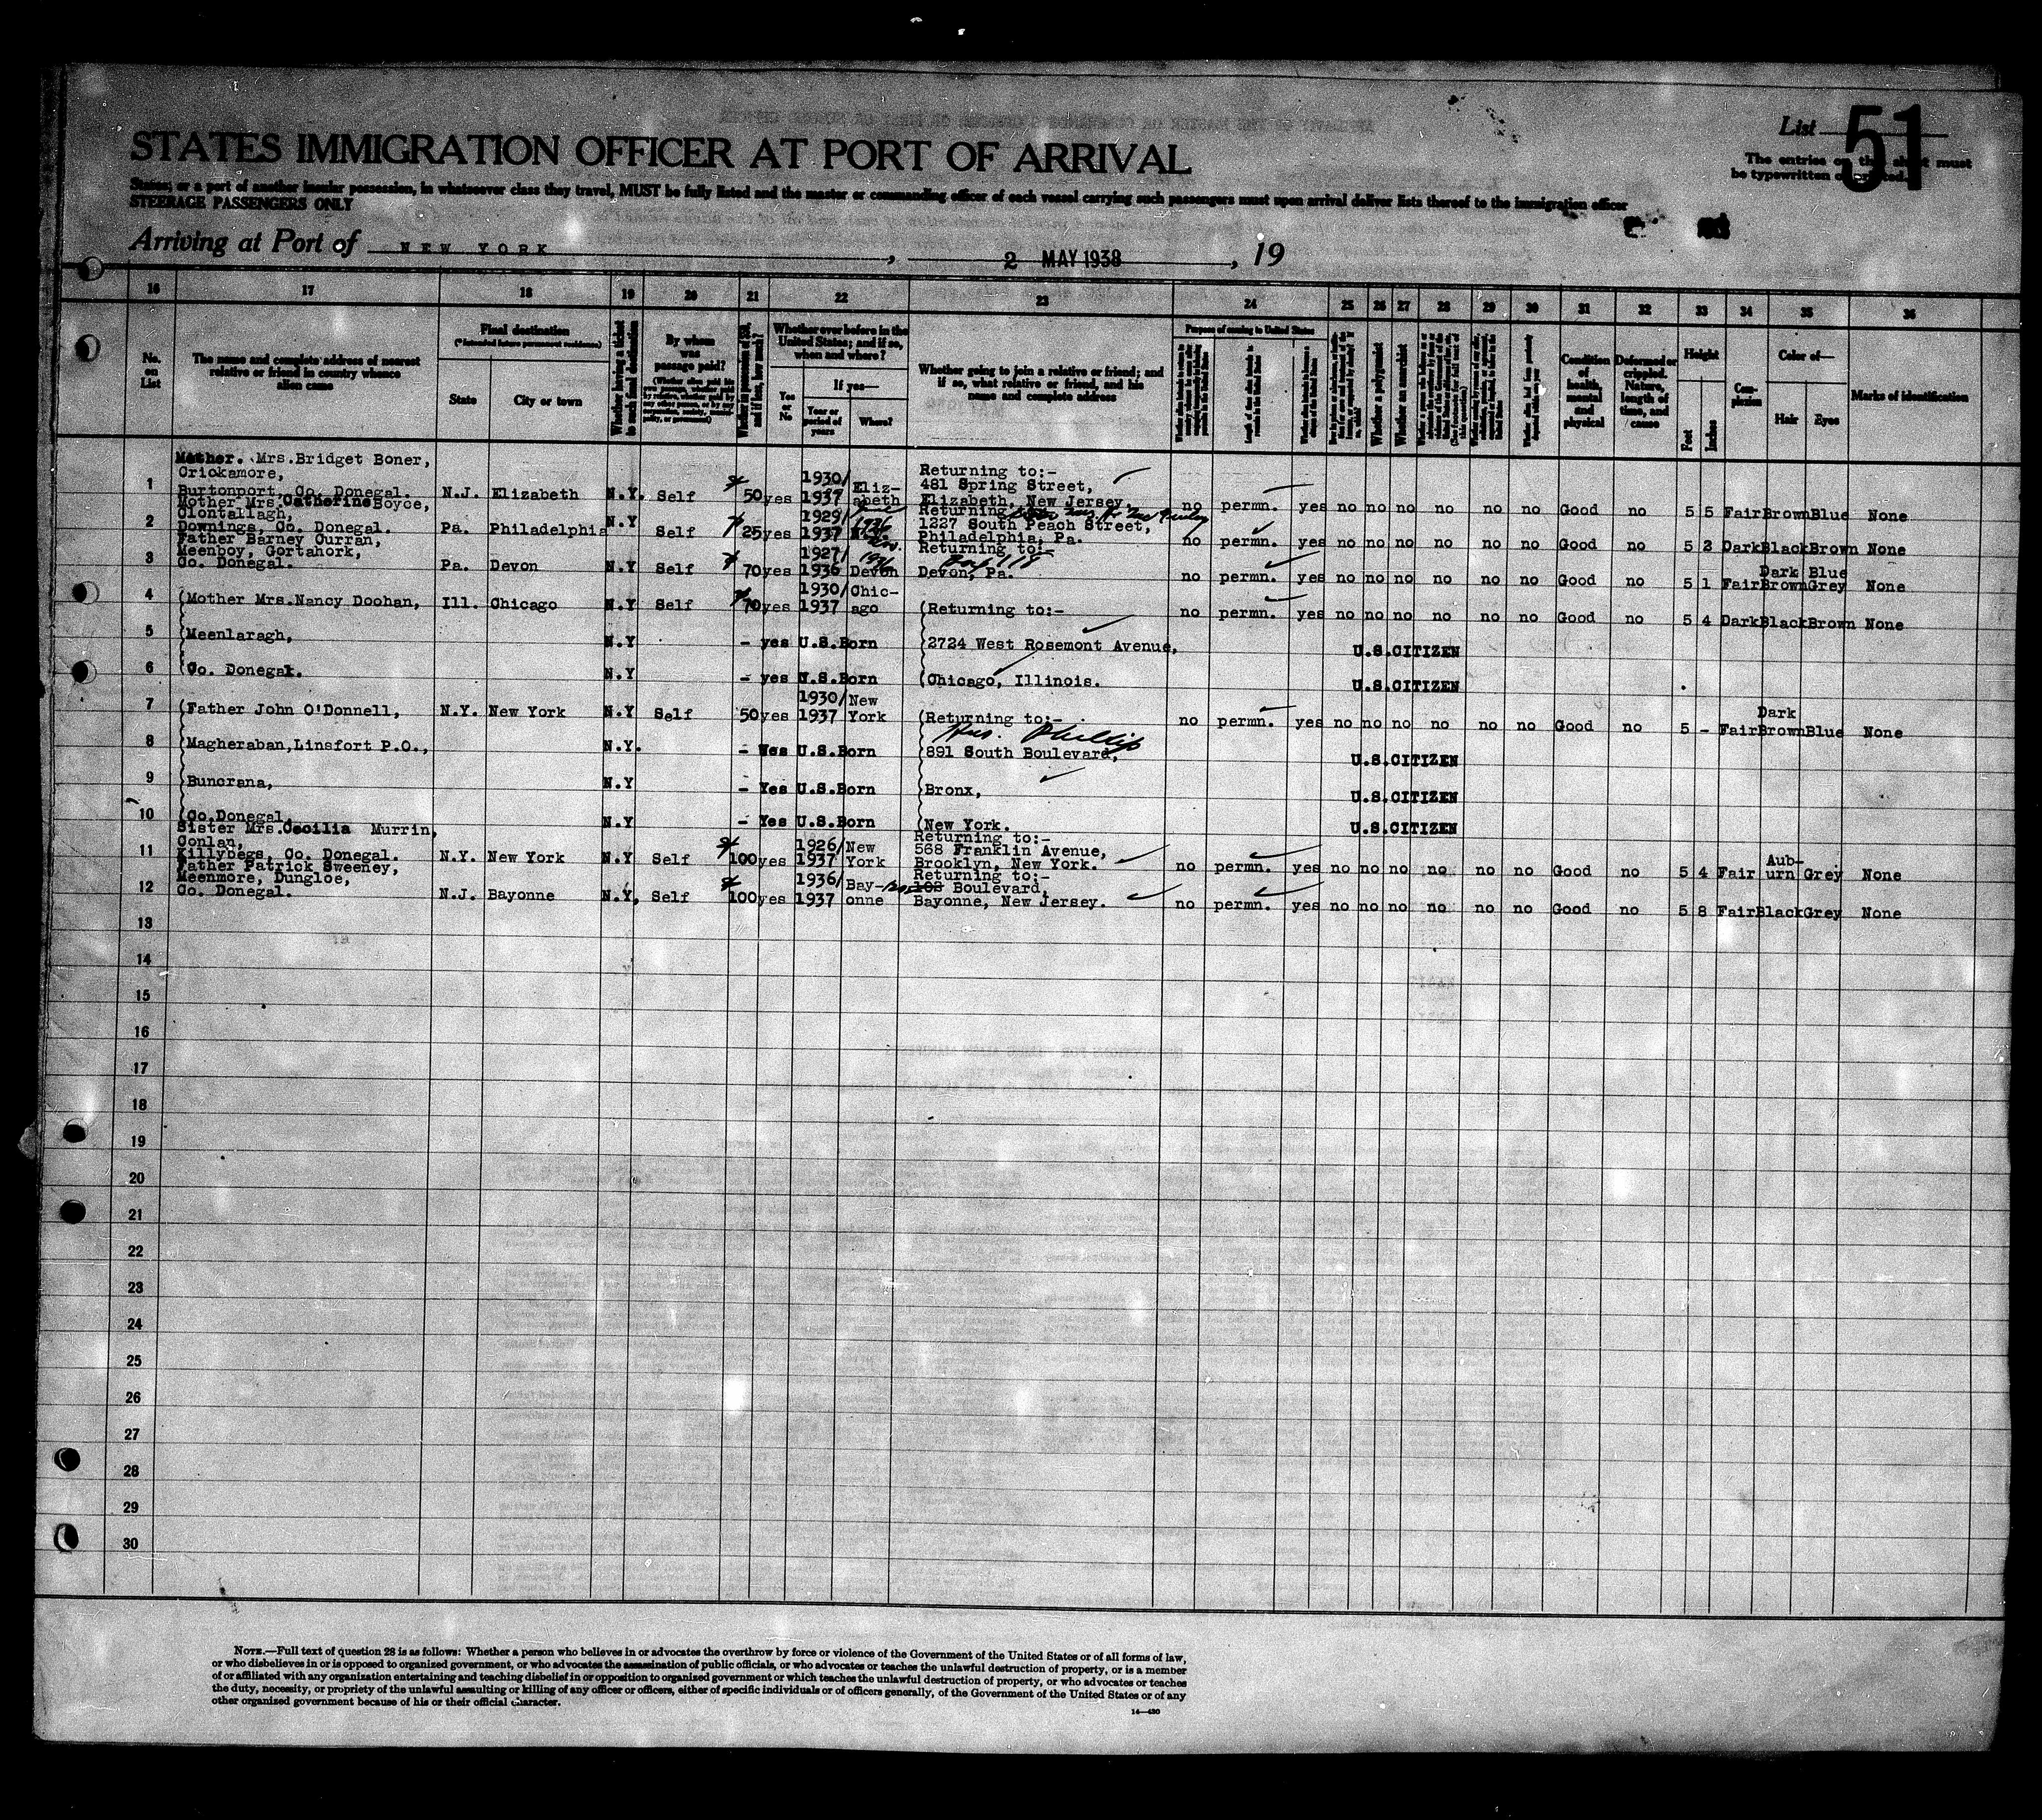 List 51
The entries on this sheet must
be typewritten or printed.
STATES IMMIGRATION OFFICER AT PORT OF ARRIVAL
States, or a part of another insular possession, in whatsoever class they travel, MUST be fully listed and the master or commanding officer of each vessel carrying such passengers must upon arrival deliver lists thereof to the immigration officer
STEERAGE PASSENGERS ONLY
Arriving at Port of NEW YORK, 2 MAY 1938, 19
16 17 18 19 20 21 22 23 24 25 26 27 28 29 30 31 32 33 34 35 36
No. on List
The name and complete address of nearest
relative or friend in country whence
alien came
Final destination
(* Intended future permanent residence)
State
City or town
Whether having a ticket
to such final destination
By whom
was
passage paid?
Whether ever before in the
United States; and if so,
when and where?
Yes
or
No
If yes—
Year or
period of
years
Where?
Whether going to join a relative or friend; and
if so, what relative or friend, and his
name and complete address
Purpose of coming to United States
Whether a polygamist
Whether an anarchist
Condition
of
health,
mental
and
physical
Deformed or
crippled.
Nature,
length of
time, and
cause
Height
Feet
Inches
Com-
plexion
Color of—
Hair
Eyes
Marks of identification
1 Mother. Mrs.Bridget Boner,
Crickamore,
Burtonport, Co. Donegal. N.J. Elizabeth N.Y. Self 50 yes 1930/1937 Eliz-abeth
Returning to:-
481 Spring Street,
Elizabeth, New Jersey. no permn. yes no no no no no no Good no 5 5 Fair Brown Blue None
2 Mother Mrs.Catherine Boyce,
Clontallagh,
Downings, Co. Donegal. Pa. Philadelphia N.Y Self 25 yes 1929/1937
Returning
1227 South Peach Street,
Philadelphia, Pa. no permn. yes no no no no no no Good no 5 2 Dark Black Brown None
3 Father Barney Curran,
Meenboy, Gortahork,
Co. Donegal. Pa. Devon N.Y Self 70 yes 1927/1936 1936 Devon
Returning to:-
Box 118
Devon, Pa. no permn. yes no no no no no no Good no 5 1 Fair Dark Brown Blue Grey None
4 (Mother Mrs.Nancy Doohan, Ill. Chicago N.Y Self 70 yes 1930/1937 Chic-ago (Returning to:- no permn. yes no no no no no no Good no 5 4 Dark Black Brown None
5 (Meenlaragh, N.Y - yes U.S.Born (2724 West Rosemont Avenue, U.S.CITIZEN
6 (Co. Donegal. N.Y - yes U.S.Born (Chicago, Illinois. U.S.CITIZEN
7 (Father John O'Donnell, N.Y. New York N.Y Self 50 yes 1930/1937 New York (Returning to:- no permn. yes no no no no no no Good no 5 - Fair Dark Brown Blue None
Hus. Phillip
8 (Magheraban,Linsfort P.O., N.Y. - Yes U.S.Born (891 South Boulevard, U.S.CITIZEN
9 (Buncrana, N.Y - Yes U.S.Born (Bronx, U.S.CITIZEN
10 (Co.Donegal. N.Y - Yes U.S.Born (New York. U.S.CITIZEN
11 Sister Mrs.Cecilia Murrin,
Conlan,
Killybegs, Co. Donegal. N.Y. New York N.Y Self 100 yes 1926/1937 New York
Returning to:-
568 Franklin Avenue,
Brooklyn, New York. no permn. yes no no no no no no Good no 5 4 Fair Aub-urn Grey None
12 Father Patrick Sweeney,
Meenmore, Dungloe,
Co. Donegal. N.J. Bayonne N.Y, Self 100 yes 1936/1937 Bay-onne
Returning to:-
Boulevard,
Bayonne, New Jersey. no permn. yes no no no no no no Good no 5 8 Fair Black Grey None
13
14
15
16
17
18
19
20
21
22
23
24
25
26
27
28
29
30
NOTE.—Full text of question 28 is as follows: Whether a person who believes in or advocates the overthrow by force or violence of the Government of the United States or of all forms of law,
or who disbelieves in or is opposed to organized government, or who advocates the assassination of public officials, or who advocates or teaches the unlawful destruction of property, or is a member
of or affiliated with any organization entertaining and teaching disbelief in or opposition to organized government or which teaches the unlawful destruction of property, or who advocates or teaches
the duty, necessity, or propriety of the unlawful assaulting or killing of any officer or officers, either of specific individuals or of officers generally, of the Government of the United States or of any
other organized government because of his or their official character.
14—430